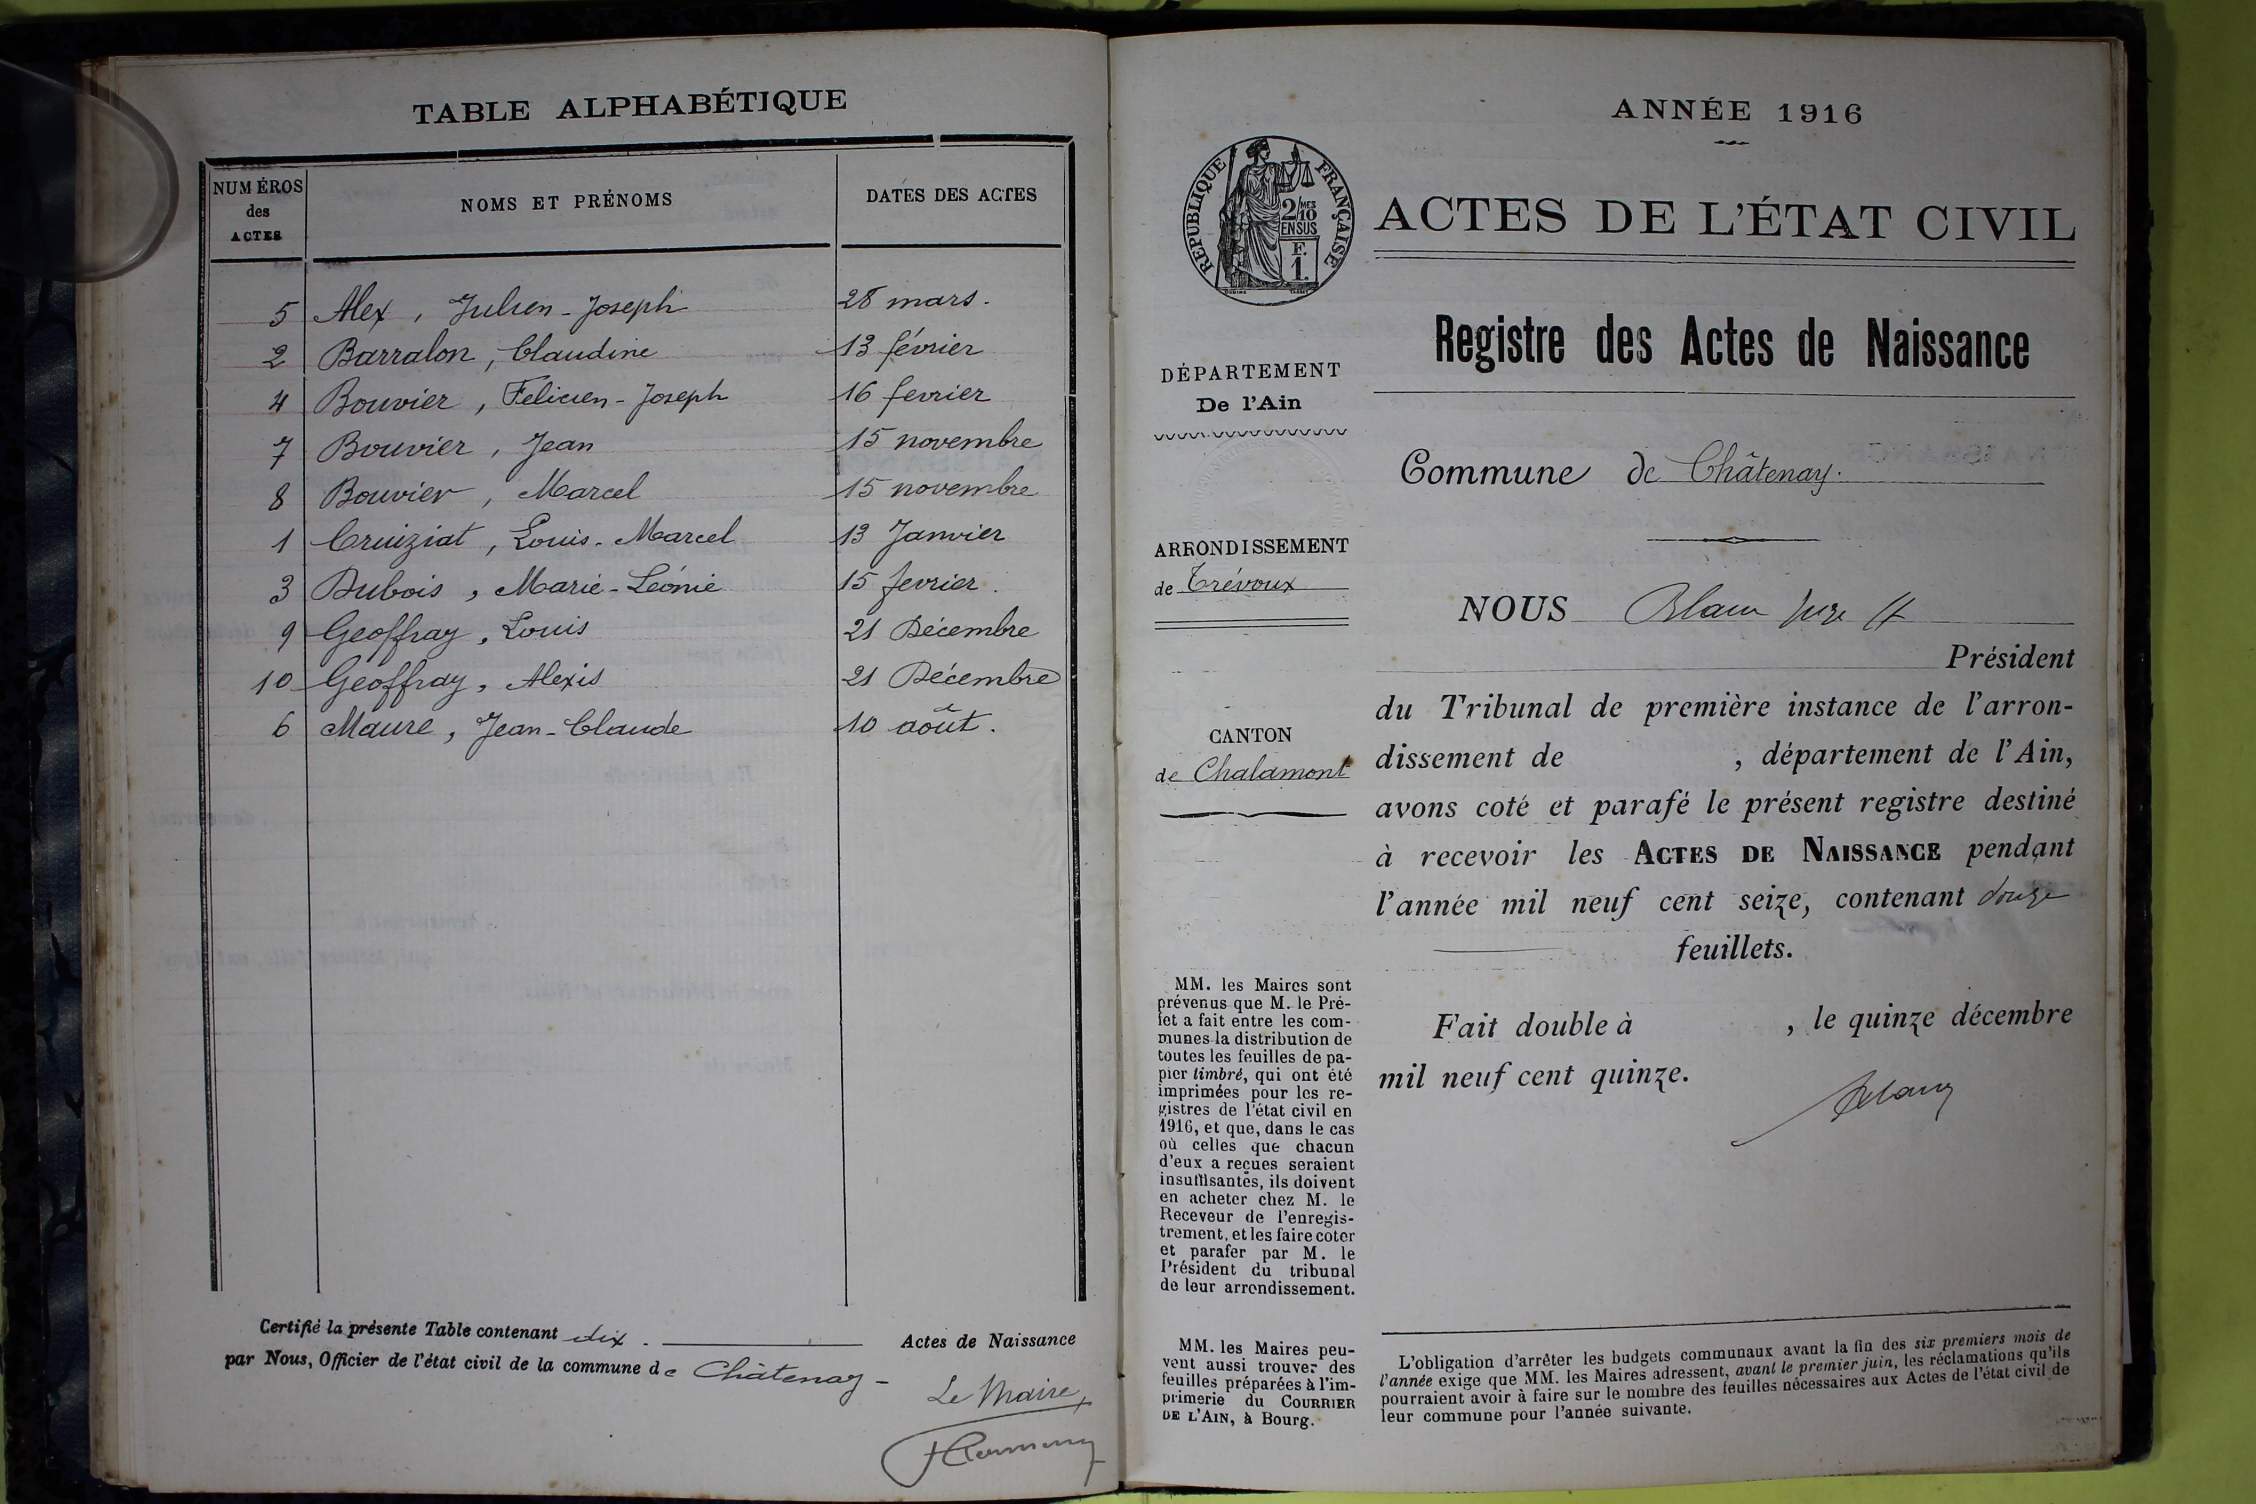 TABLE ALPHABÉTIQUE
NUMÉROS des ACTES NOMS ET PRÉNOMS DATES DES ACTES
5 Alex, Julien-Joseph 28 mars.
2 Barralon, Claudine 13 février
4 Bouvier, Felicien-Joseph 16 fevrier
7 Bouvier, Jean 15 novembre
8 Bouvier, Marcel 15 novembre
1 Cruiziat, Louis-Marcel 13 Janvier
3 Dubois, Marie-Léonie 15 fevrier.
9 Geoffray, Louis 21 Décembre
10 Geoffray, Alexis 21 Décembre
6 Maure, Jean-Claude 10 août.
Certifié la présente Table contenant dix. Actes de Naissance
par Nous, Officier de l'état civil de la commune de Châtenay-
Le Maire,
ANNÉE 1916
RÉPUBLIQUE FRANÇAISE
2/10 MES
EN SUS
F.
1.
ACTES DE L'ÉTAT CIVIL
Registre des Actes de Naissance
DÉPARTEMENT
De l'Ain
ARRONDISSEMENT
de Trévoux
CANTON
de Chalamont
MM. les Maires sont
prévenus que M. le Pré-
fet a fait entre les com-
munes la distribution de
toutes les feuilles de pa-
pier timbré, qui ont été
imprimées pour les re-
gistres de l'état civil en
1916, et que, dans le cas
où celles que chacun
d'eux a reçues seraient
insuffisantes, ils doivent
en acheter chez M. le
Receveur de l'enregis-
trement, et les faire coter
et parafer par M. le
Président du tribunal
de leur arrondissement.
MM. les Maires peu-
vent aussi trouver des
feuilles préparées à l'im-
primerie du COURRIER
DE L'AIN, à Bourg.
Commune de Châtenay.
NOUS
Président
du Tribunal de première instance de l'arron-
dissement de , département de l'Ain,
avons coté et parafé le présent registre destiné
à recevoir les ACTES DE NAISSANCE pendant
l'année mil neuf cent seize, contenant douze
feuillets.
Fait double à , le quinze décembre
mil neuf cent quinze.
L'obligation d'arrêter les budgets communaux avant la fin des six premiers mois de
l'année exige que MM. les Maires adressent, avant le premier juin, les réclamations qu'ils
pourraient avoir à faire sur le nombre des feuilles nécessaires aux Actes de l'état civil de
leur commune pour l'année suivante.